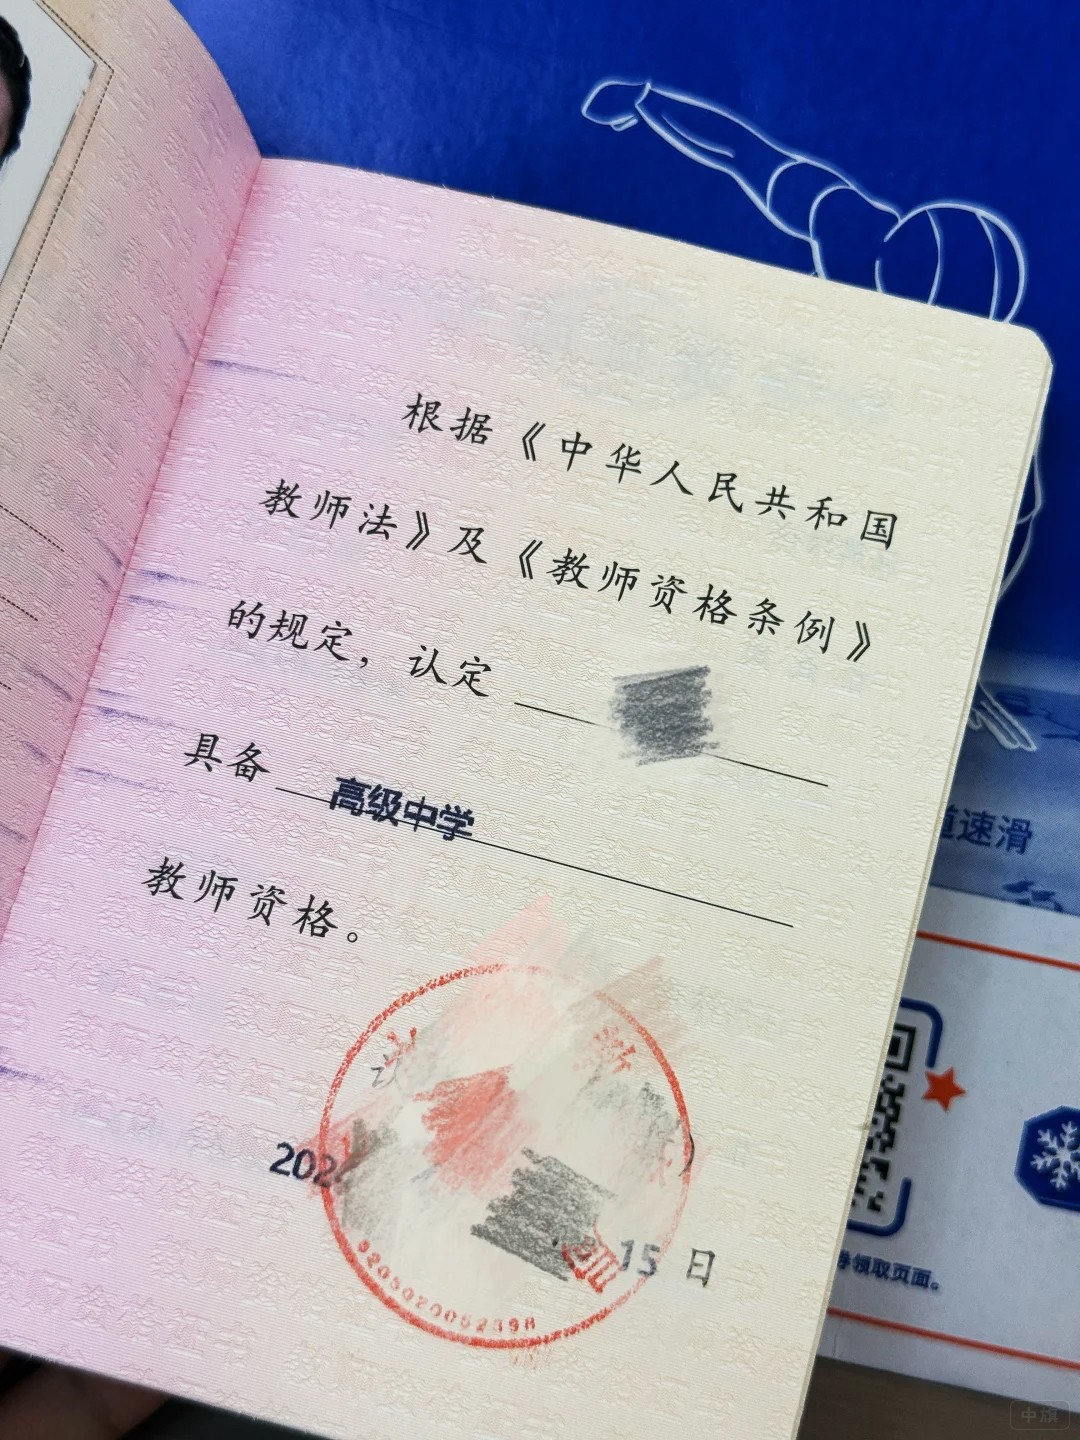 根据《中华人民共和国
教师法》及《教师资格条例》
的规定，认定
具备 高级中学
教师资格。
202
15 日
5205020052398
道速滑
券领取页面。
中旗